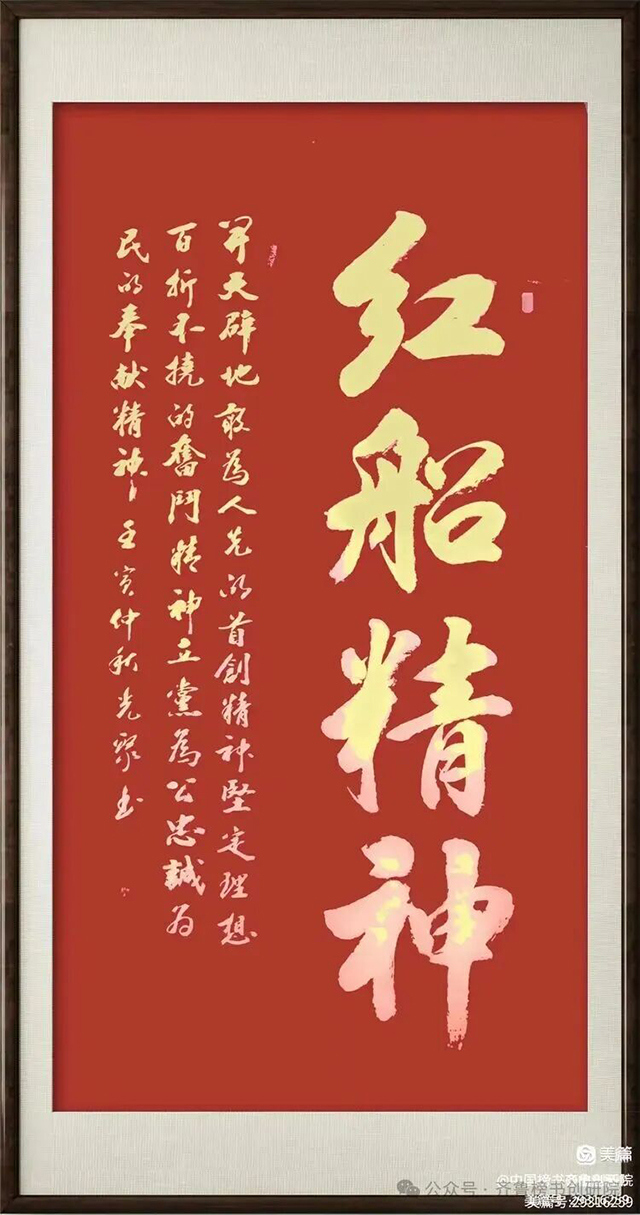 红船精神
開天辟地敢為人先的首創精神堅定理想
百折不撓的奮鬥精神立黨為公忠誠為
民的奉献精神壬寅仲秋光聚书
美篇
公众号·齐鲁榜书创研院
美篇号:29316259